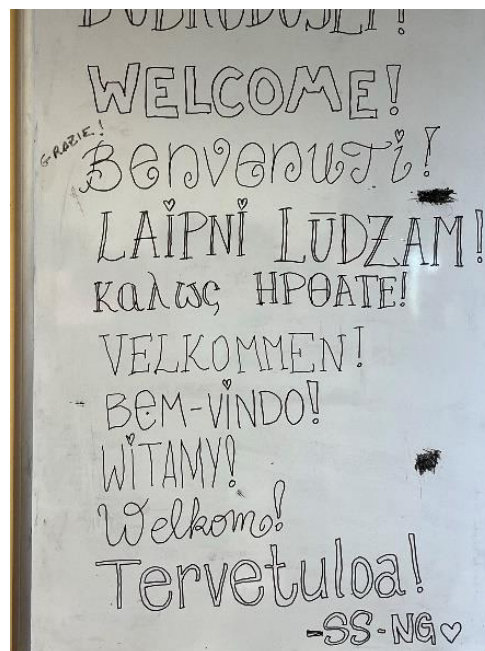 DOBRODOŠLI!
WELCOME!
GRAZIE!
Benvenuti!
LAIPNI LŪDZAM!
καλως ΗΡΘΑΤΕ!
VELKOMMEN!
BEM-VINDO!
WITAMY!
Welkom!
Tervetuloa!
-SS-NG♡